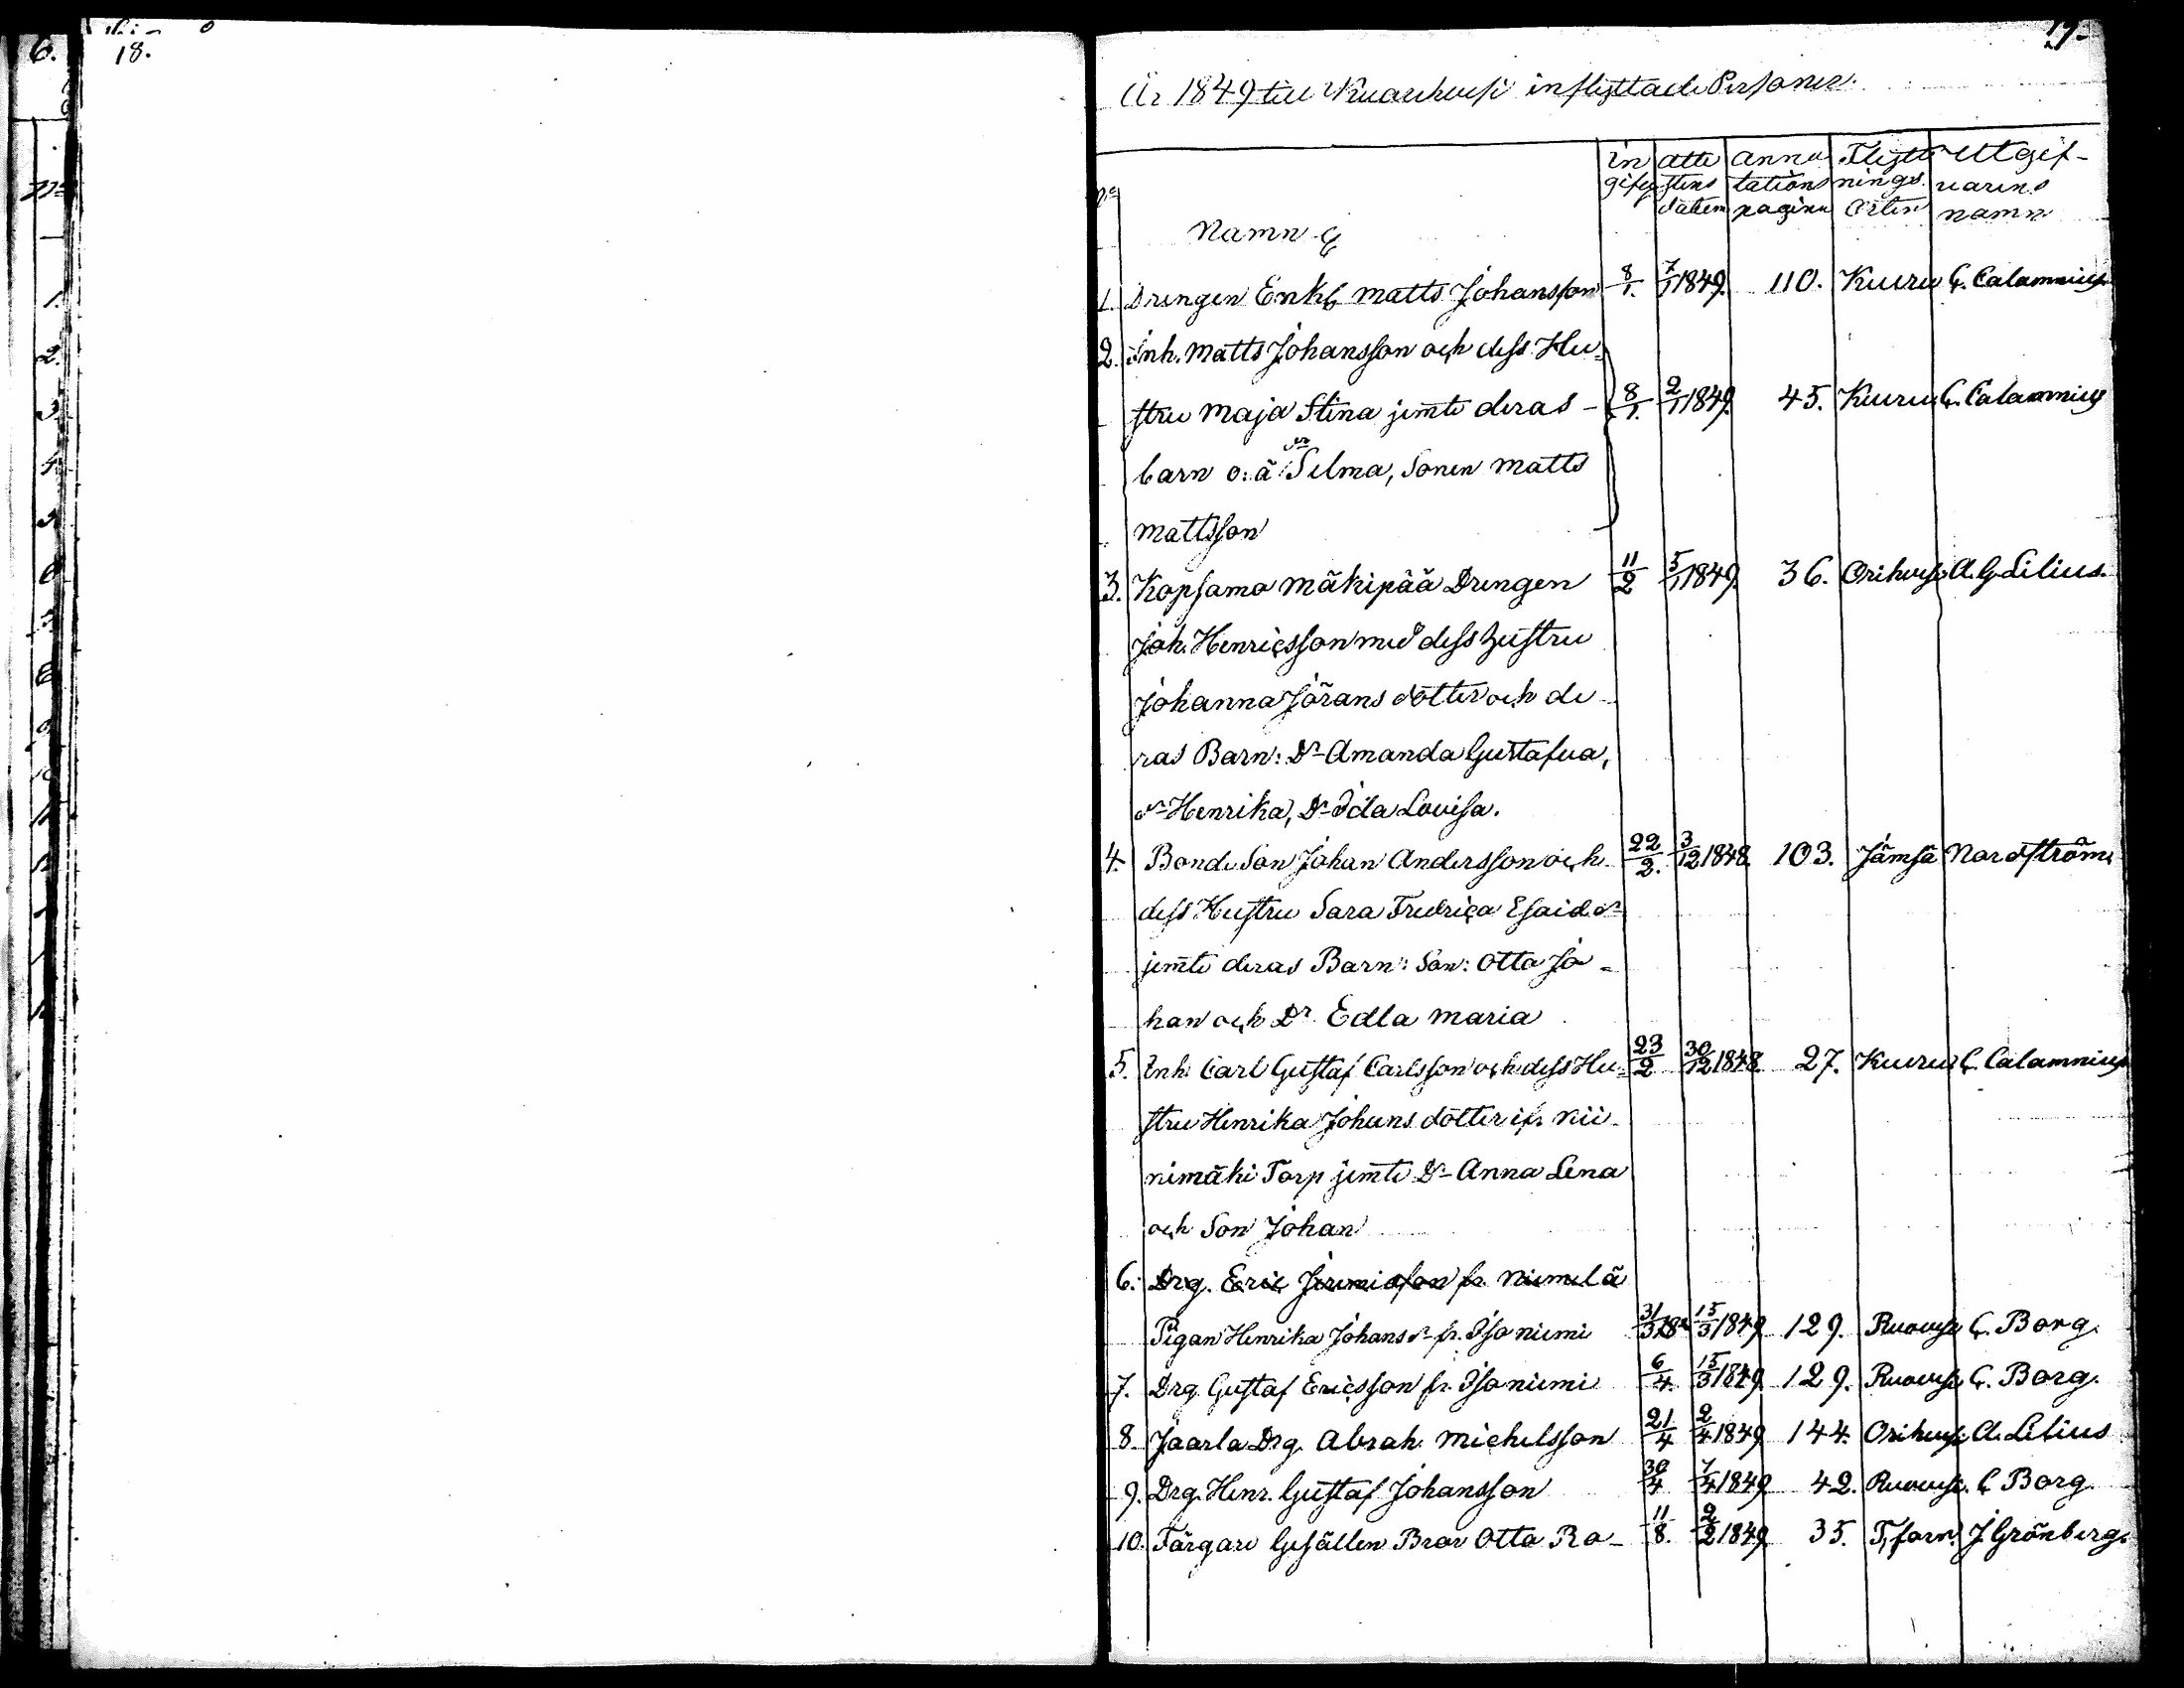 6.
18.
19.
År 1849 till Ruovesi inflyttade Personer.
No Namn & ingifvy attestens datum annotations pagina Flyttnings Orten Utgifvarens namn
1. Drengen Enkl Matts Johansson 8/1. 7/1 1849. 110. Kuru C. Calamnius
2. Inh. Matts Johansson och dess Hu=
stru Maja Stina jemte deras - 8/1. 2/1 1849. 45. Kuru C. Calamnius
barn o: ä Selma, Sonen Matts
Mattsson
3. Kopsamo Mäkipää Drengen 11/2 5/1 1849. 36. Orihvesi A. G. Lilius.
Joh. Henricsson med dess hustru
Johanna Jörans dotter och de-
ras Barn: Dr Amanda Gustafva,
dr Henrika, Dr Ida Lovisa.
4. Bonde Son Johan Andersson och 22/2. 3/12 1848. 103. Jämsä Nordström
dess Hustru Sara Fredrica Esaidr
jemte deras Barn: Son: Otto Jo=
han och Dr Edla Maria
5. Inh. Carl Gustaf Carlsson och dess Hu= 23/2 30/12 1848 27. Kuru C. Calamnius
stru Henrika Johans dotter ifr. Nii-
nimäki Torp jemte Dr Anna Lena
och Son Johan
6. Drg. Eric Jeremiasson fr. Niemelä
Pigan Henrika Johans dr fr. Isoniemi 31/3 15/3 1849 129. Ruovesi C. Borg.
7. Drg. Gustaf Ericsson fr. Isoniemi 6/4. 15/3 1849. 129. Ruovesi C. Borg.
8. Jaarla Drg. Abrah. Michelsson 21/4 2/4 1849 144. Orihvesi A. Lilius
9. Drg. Henr. Gustaf Johansson 30/4 7/4 1849 42. Ruovesi. C Borg.
10. Färgare Gesällen Bror Otto Ro- 11/8. 2/2 1849. 35. T,fors. J. Grönberg.